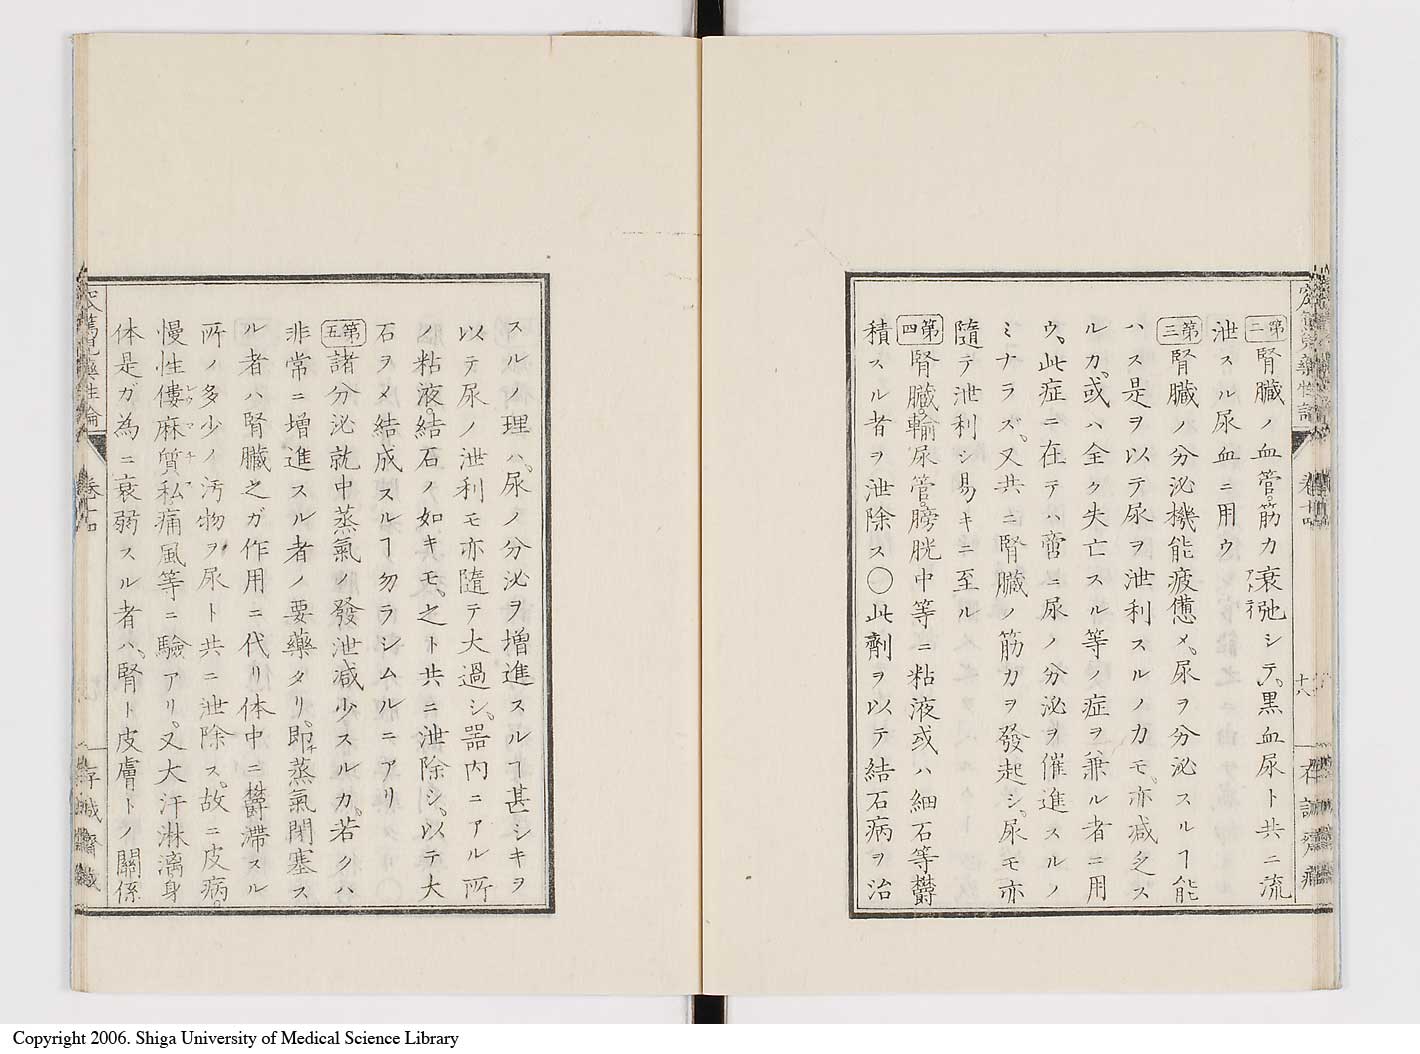 第二 腎臓ノ血管。筋力衰弛シテ。黒血尿ト共ニ流
泄スル尿血ニ用ウ
第三 腎臓ノ分泌機能疲憊メ。尿ヲ分泌スルヿ能
ハス是ヲ以テ尿ヲ泄利スルノ力モ。亦減乏ス
ルカ。或ハ全ク失亡スル等ノ症ヲ兼ル者ニ用
ウ。此症ニ在テハ啻ニ尿ノ分泌ヲ催進スルノ
ミナラズ。又共ニ腎臓ノ筋力ヲ發起シ。尿モ亦
隨テ泄利シ易キニ至ル
第四 腎臓。輸尿管。膀胱中等ニ粘液或ハ細石等欝
積スル者ヲ泄除ス〇此劑ヲ以テ結石病ヲ治
スルノ理ハ。尿ノ分泌ヲ増進スルヿ甚シキヲ
以テ尿ノ泄利モ亦隨テ大過シ。器内ニアル所
ノ粘液。結石ノ如キモ。之ト共ニ泄除シ。以テ大
石ヲメ結成スルヿ勿ラシムルニアリ
第五 諸分泌就中蒸氣ノ發泄減少スルカ。若クハ
非常ニ増進スル者ノ要藥タリ。即チ蒸氣閉塞ス
ル者ハ腎臓之ガ作用ニ代リ体中ニ欝滞スル
所ノ多少ノ汚物ヲ尿ト共ニ泄除ス。故ニ皮病。
慢性僂麻質私痛風等ニ驗アリ。又大汗淋漓身
体是ガ為ニ衰弱スル者ハ。腎ト皮膚トノ關係
卷十四
十八
卷十四